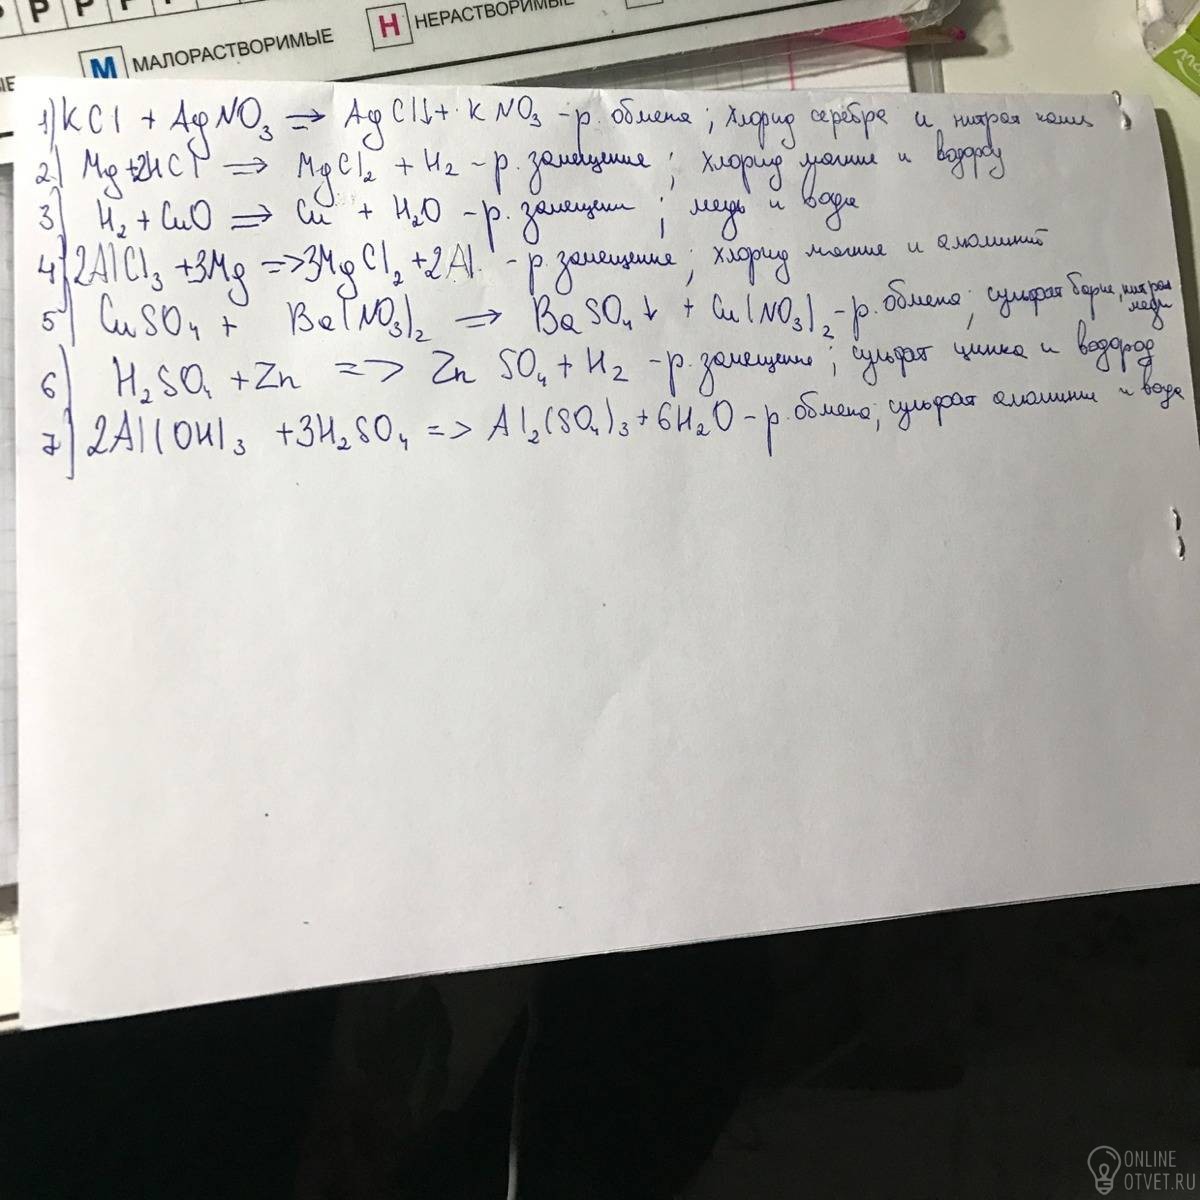 Р Р Р Р
М МАЛОРАСТВОРИМЫЕ
Н НЕРАСТВОРИМЫЕ
1) KCl + AgNO3 => AgCl↓ + KNO3 - р. обмена ; хлорид серебра и нитрат калия
2) Mg + 2HCl => MgCl2 + H2 - р. замещение ; хлорид магние и водород
3) H2 + CuO => Cu + H2O - р. замещени ; медь и вода
4) 2AlCl3 + 3Mg => 3MgCl2 + 2Al - р. замещение ; хлорид магние и алюминий
5) CuSO4 + Ba(NO3)2 => BaSO4↓ + Cu(NO3)2 - р. обмена ; сульфат барие, нитрат меди
6) H2SO4 + Zn => ZnSO4 + H2 - р. замещение ; сульфат цинка и водород
7) 2Al(OH)3 + 3H2SO4 => Al2(SO4)3 + 6H2O - р. обмена ; сульфат алюминие и вода
ONLINE
OTVET.RU